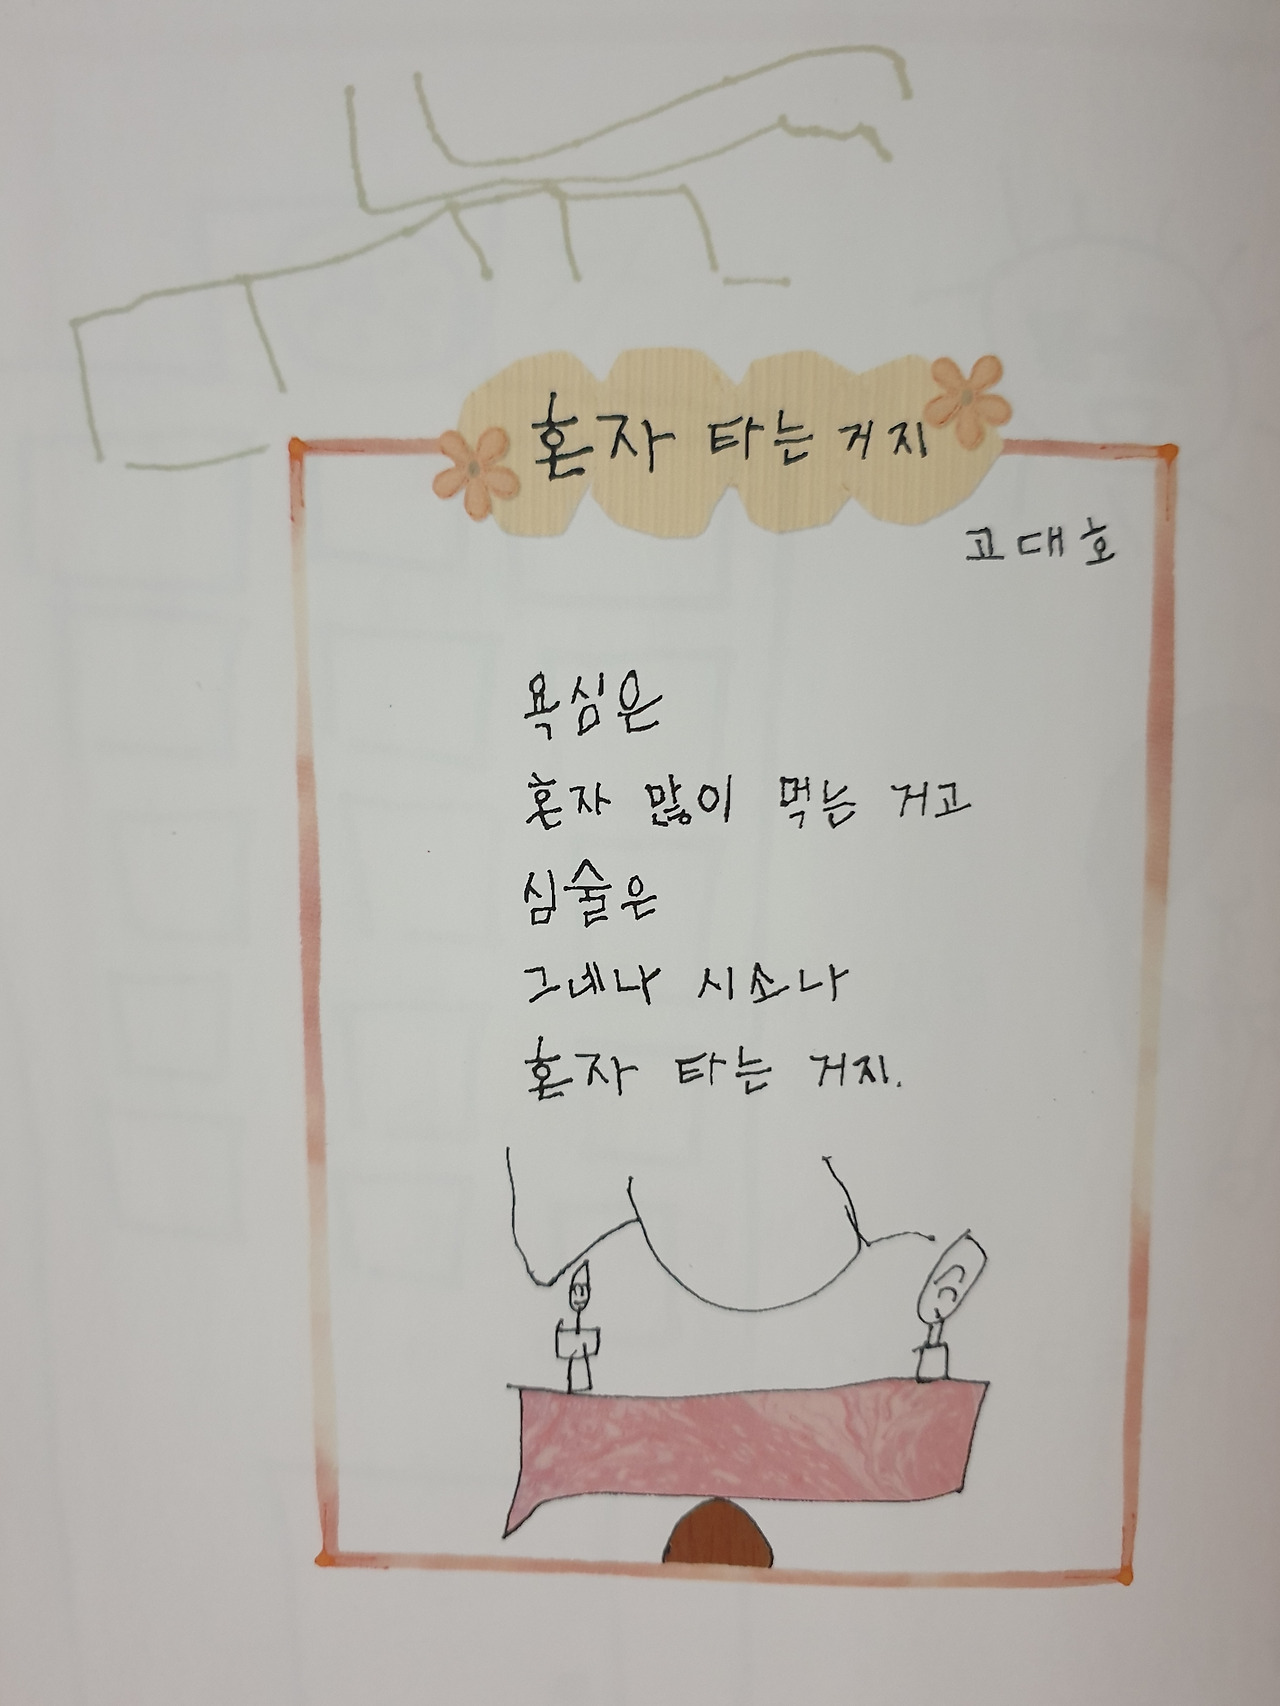 혼자 타는 거지
고대호
욕심은
혼자 많이 먹는 거고
심술은
그네나 시소나
혼자 타는 거지.